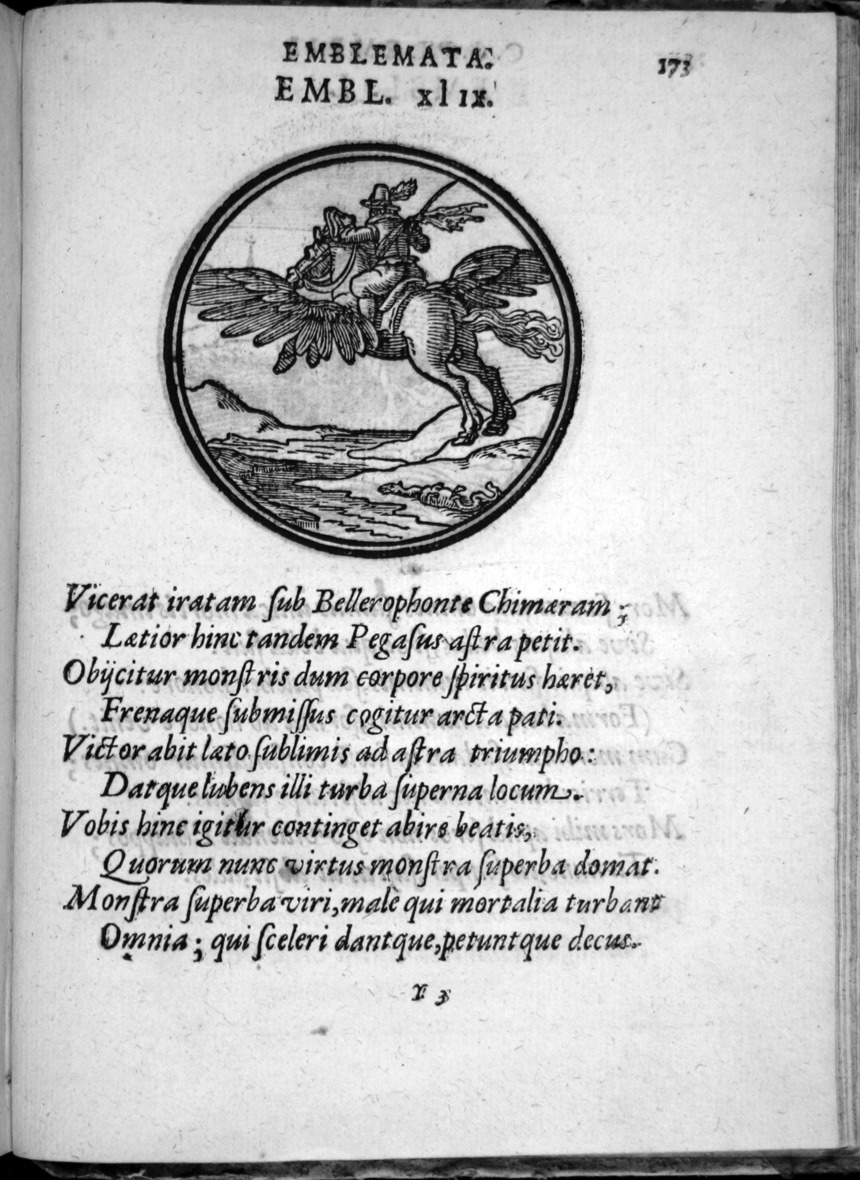 EMBLEMATA.
173
EMBL. xlıx.
Vicerat iratam ſub Bellerophonte Chimæram ;
Lætior hinc tandem Pegaſus aſtra petit.
Obijcitur monſtris dum corpore ſpiritus hæret,
Frenaque ſubmiſſus cogitur arcta pati.
Victor abit læto ſublimis ad aſtra triumpho :
Datque lubens illi turba ſuperna locum.
Vobis hinc igitur continget abire beatis,
Quorum nunc virtus monſtra ſuperba domat.
Monſtra ſuperba viri, malè qui mortalia turbant
Omnia ; qui ſceleri dantque, petuntque decus.
Y 3